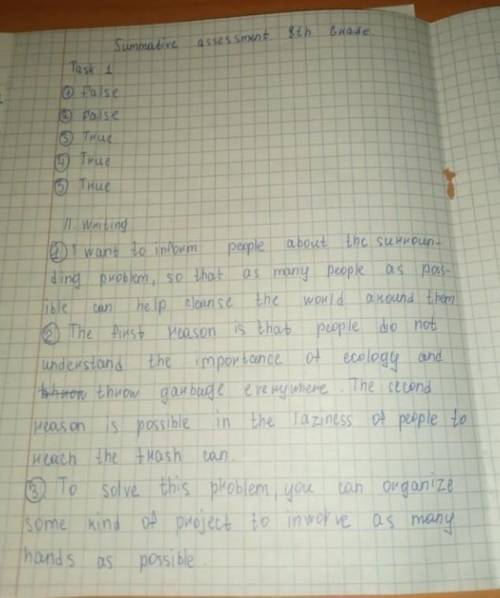 Summative assessment 8th Grade
Task 1
① False
② False
③ True
④ True
⑤ True
II. Writing
① I want to inform people about the surroun-
ding problem, so that as many people as poss-
ible can help cleanse the world around them
② The first reason is that people do not
understand the importance of ecology and
throw garbage everywhere. The second
reason is possible in the laziness of people to
reach the trash can.
③ To solve this problem, you can organize
some kind of project to involve as many
hands as possible.